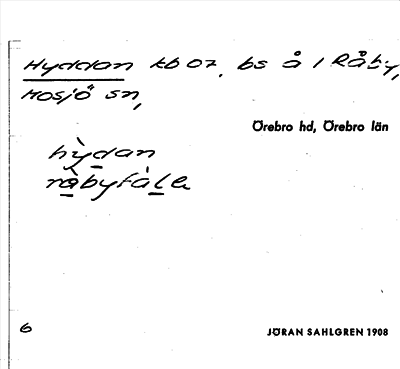 Hyddan tb 07. bs å i Råby,
Mosjö sn,
Örebro hd, Örebro län
hỳdan
ràbyfàla
6
JÖRAN SAHLGREN 1908